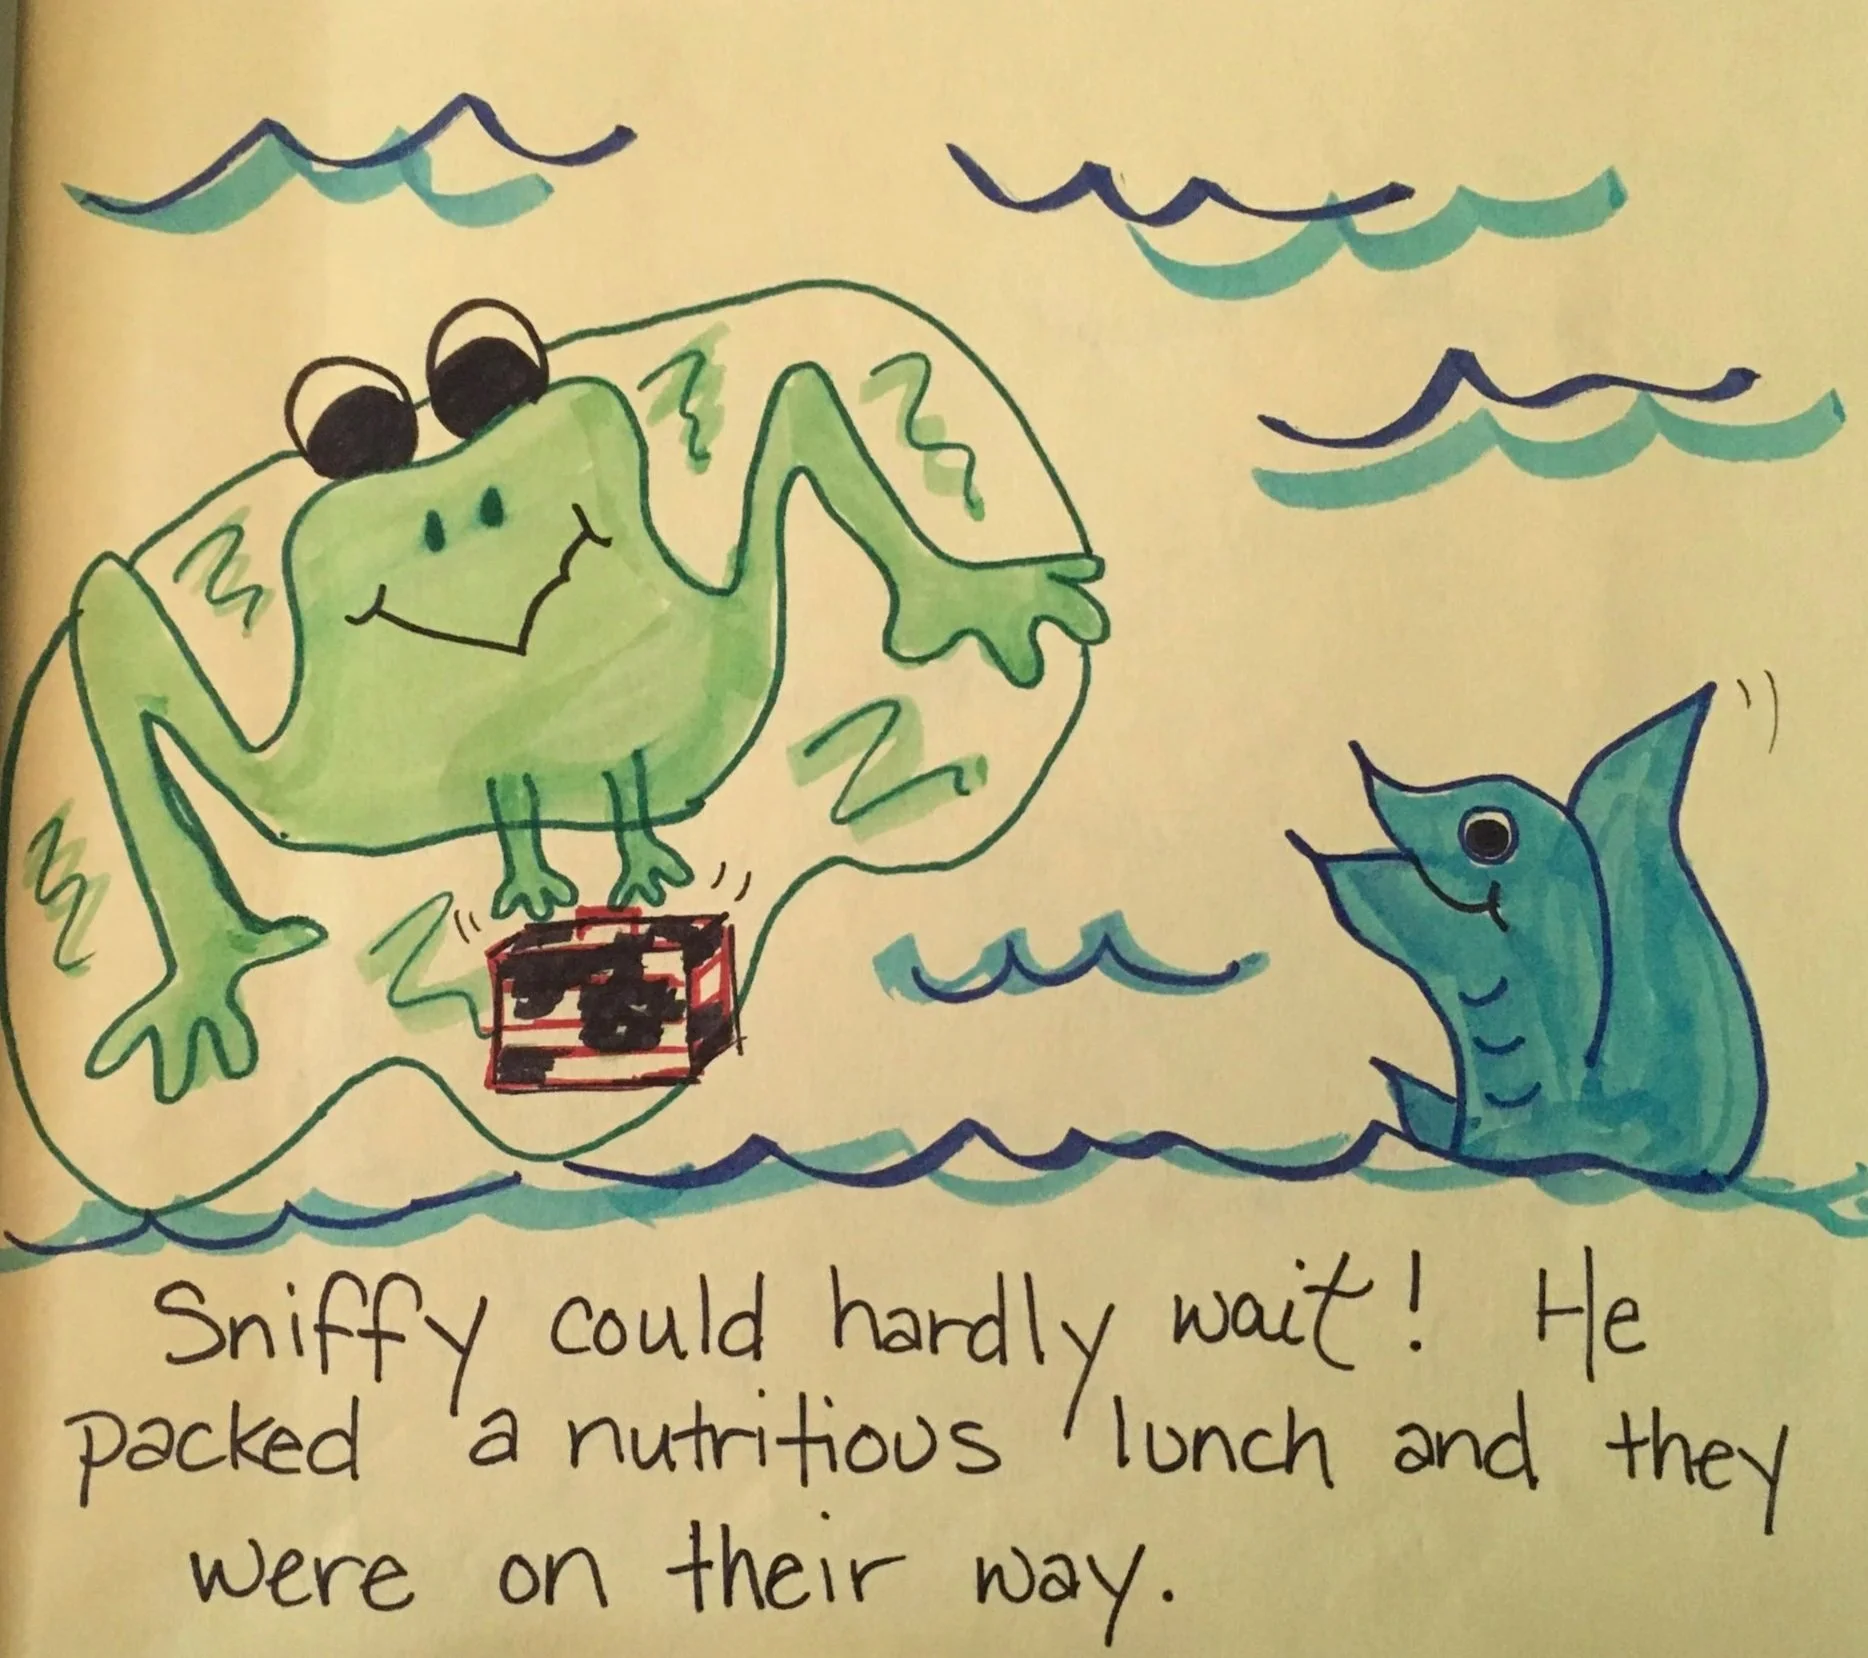 Sniffy could hardly wait! He
packed a nutritious lunch and they
were on their way.